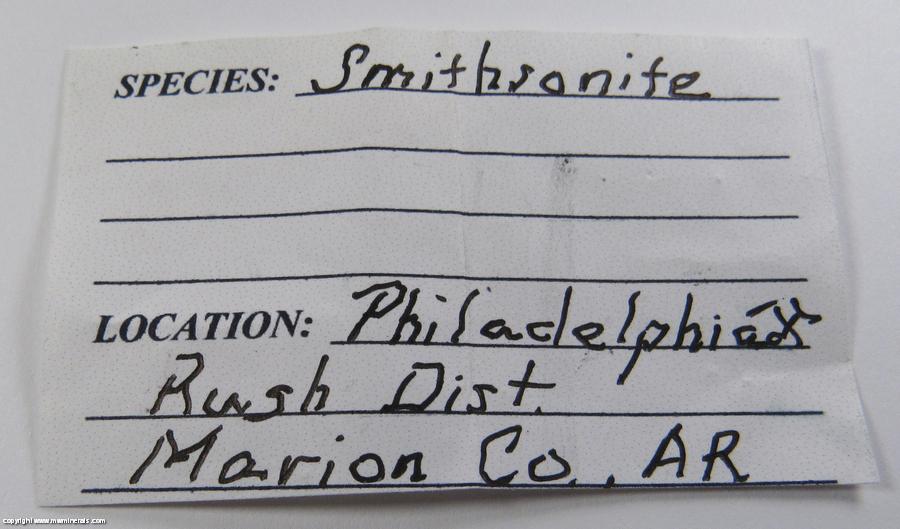 SPECIES: Smithsonite
LOCATION: Philadelphia
Rush Dist.
Marion Co., AR
copyright www.mwminerals.com